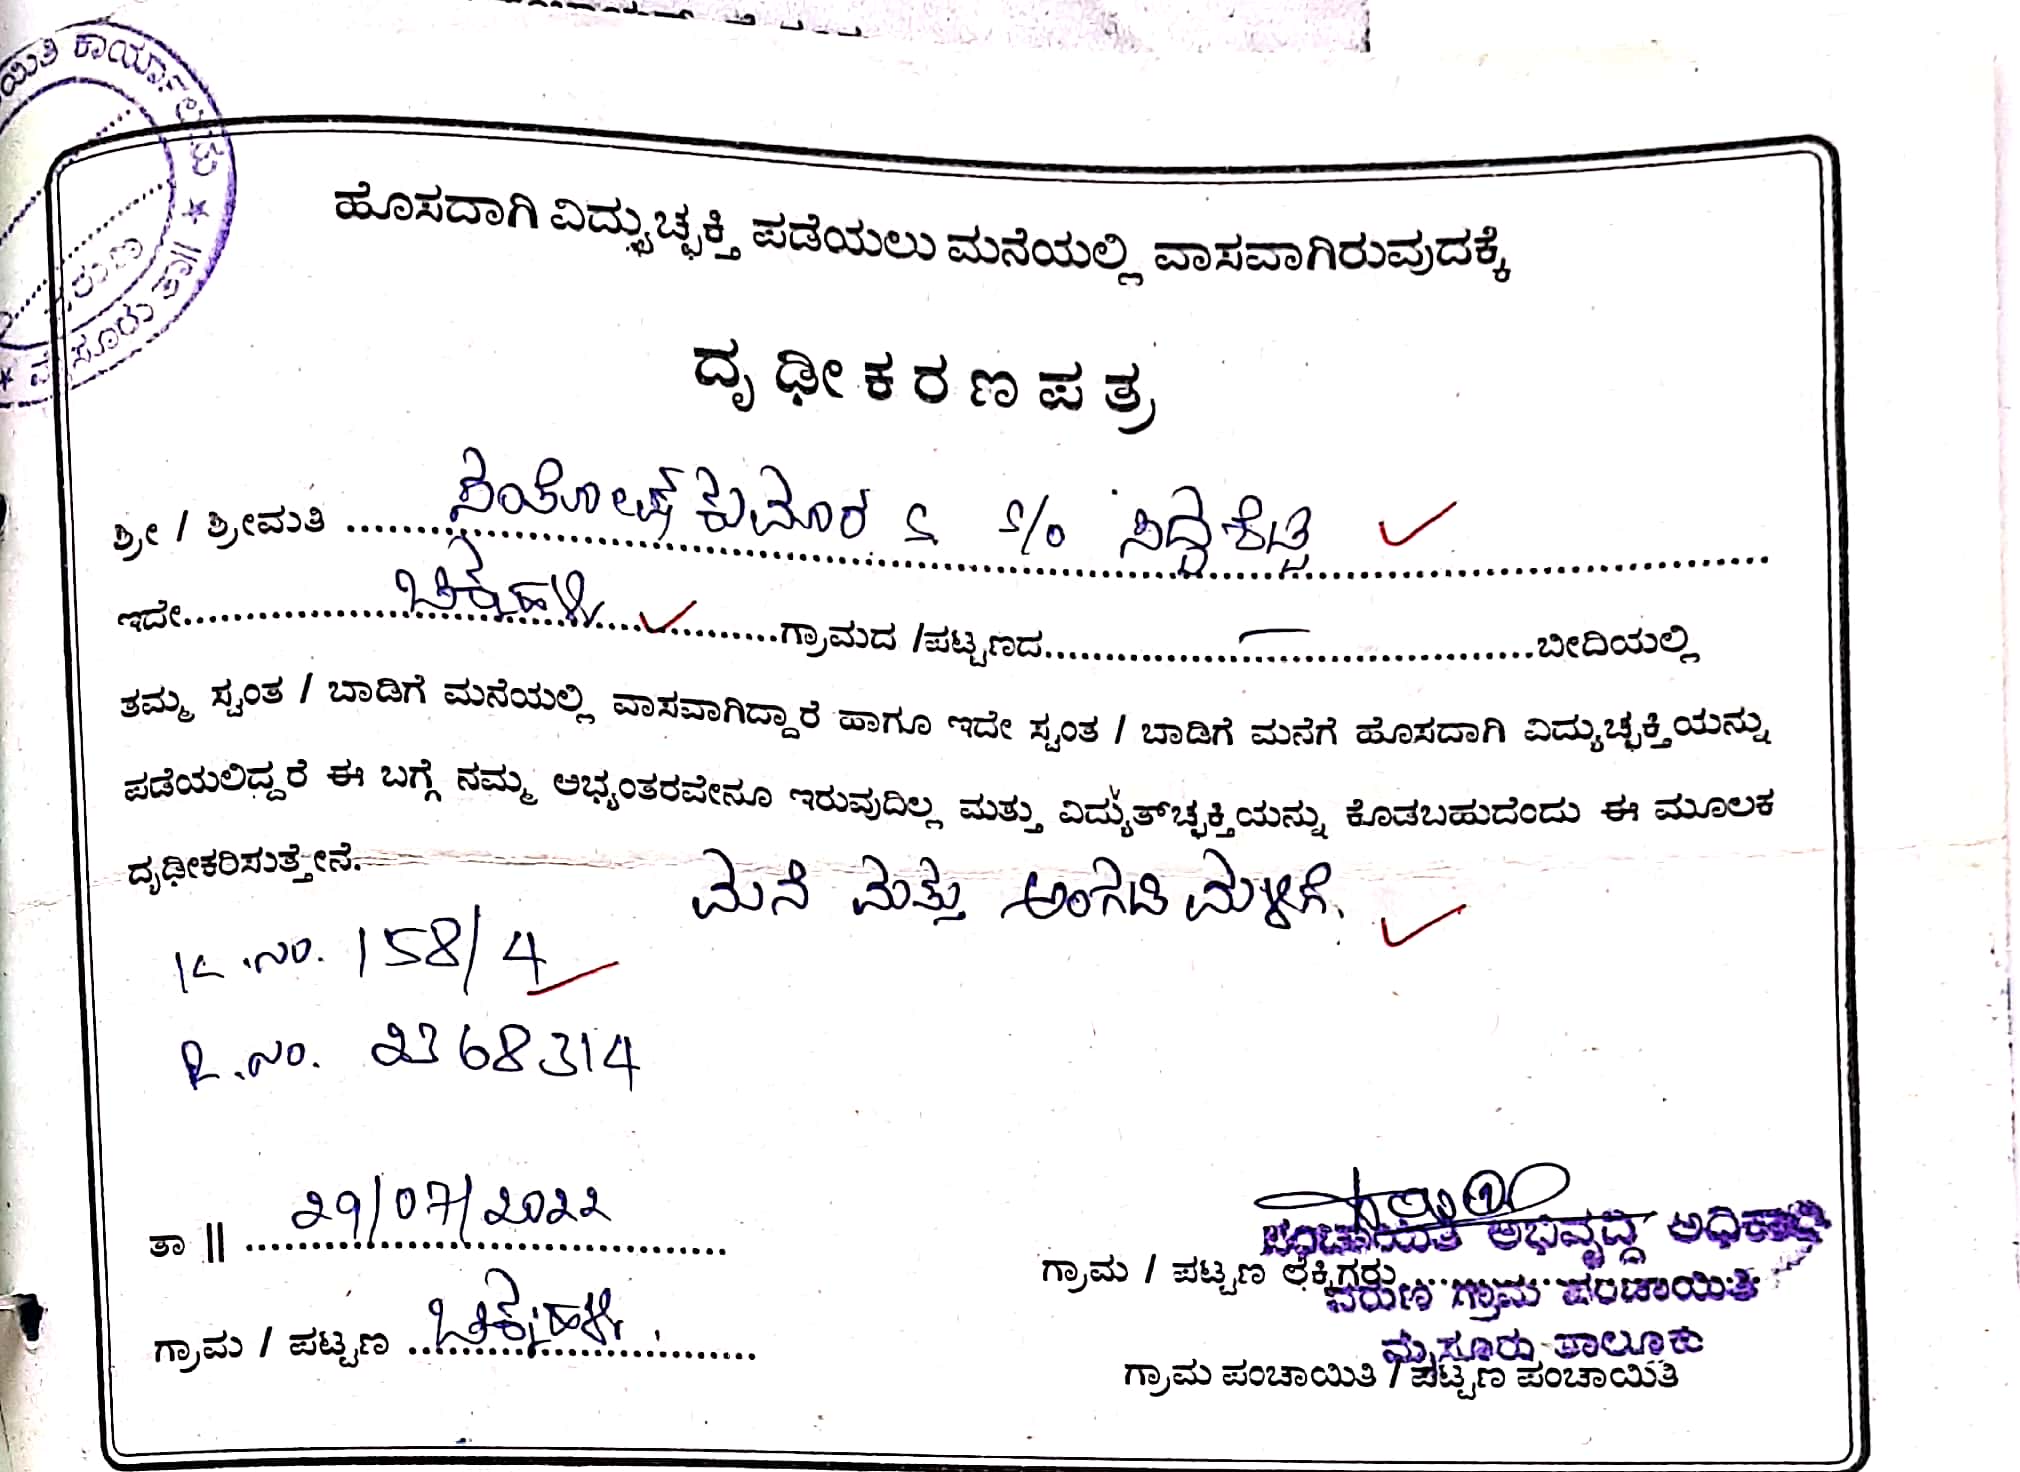 ಕಾರ್ಯಾಲಯ
ವರುಣ
ಮೈಸೂರು ತಾ||
ಹೊಸದಾಗಿ ವಿದ್ಯುಚ್ಛಕ್ತಿ ಪಡೆಯಲು ಮನೆಯಲ್ಲಿ ವಾಸವಾಗಿರುವುದಕ್ಕೆ
ದೃಢೀಕರಣಪತ್ರ
ಶ್ರೀ / ಶ್ರೀಮತಿ ಸಂತೋಷ್ ಕುಮಾರ S S/o ಸಿದ್ದಶೆಟ್ಟಿ
ಇದೇ ಚಿಕ್ಕಹಳ್ಳಿ ಗ್ರಾಮದ /ಪಟ್ಟಣದ — ಬೀದಿಯಲ್ಲಿ
ತಮ್ಮ ಸ್ವಂತ / ಬಾಡಿಗೆ ಮನೆಯಲ್ಲಿ ವಾಸವಾಗಿದ್ದಾರೆ ಹಾಗೂ ಇದೇ ಸ್ವಂತ / ಬಾಡಿಗೆ ಮನೆಗೆ ಹೊಸದಾಗಿ ವಿದ್ಯುಚ್ಛಕ್ತಿಯನ್ನು
ಪಡೆಯಲಿದ್ದರೆ ಈ ಬಗ್ಗೆ ನಮ್ಮ ಅಭ್ಯಂತರವೇನೂ ಇರುವುದಿಲ್ಲ ಮತ್ತು ವಿದ್ಯುತ್‌ಚ್ಛಕ್ತಿಯನ್ನು ಕೊಡಬಹುದೆಂದು ಈ ಮೂಲಕ
ದೃಢೀಕರಿಸುತ್ತೇನೆ.
ಮನೆ ಮತ್ತು ಅಂಗಡಿ ಮಳಿಗೆ.
K.no. 158/4
R.no. 2368314
ತಾ || 29/07/2022
ಪಂಚಾಯಿತಿ ಅಭಿವೃದ್ಧಿ ಅಧಿಕಾರಿ
ಗ್ರಾಮ / ಪಟ್ಟಣ ಲೆಕ್ಕಿಗರು
ವರುಣ ಗ್ರಾಮ ಪಂಚಾಯಿತಿ
ಗ್ರಾಮ / ಪಟ್ಟಣ ಚಿಕ್ಕಹಳ್ಳಿ
ಮೈಸೂರು ತಾಲ್ಲೂಕು
ಗ್ರಾಮ ಪಂಚಾಯಿತಿ / ಪಟ್ಟಣ ಪಂಚಾಯಿತಿ